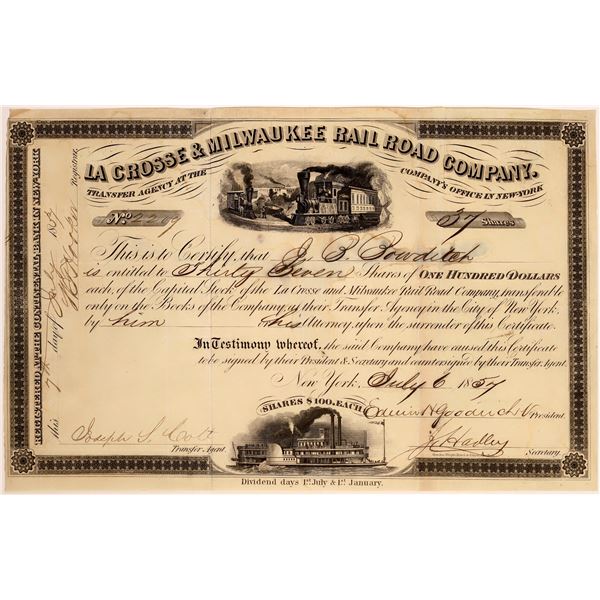 LA CROSSE & MILWAUKEE RAIL ROAD COMPANY.
TRANSFER AGENCY AT THE COMPANY'S OFFICE IN NEW-YORK
No. 37 Shares
This is to Certify, that J. B. Bowditch
is entitled to Thirty Seven Shares of ONE HUNDRED DOLLARS
each, of the Capital Stock of the La Crosse and Milwaukee Rail Road Company, transferable
only on the Books of the Company, at their Transfer Agency in the City of New York.
by him his Attorney, upon the surrender of this Certificate.
In Testimony whereof, the said Company have caused this Certificate
to be signed by their President & Secretary and countersigned by their Transfer Agent.
New York, July 6 1857
SHARES $100. EACH
Edwin H Goodrich V. President.
J. Hadley
Secretary.
Joseph S. Colt
Transfer Agent.
Dividend days 1st. July & 1st. January.
REGISTERED AT THE CONTINENTAL BANK IN NEW-YORK
this 7th day of July 185
Registrar.